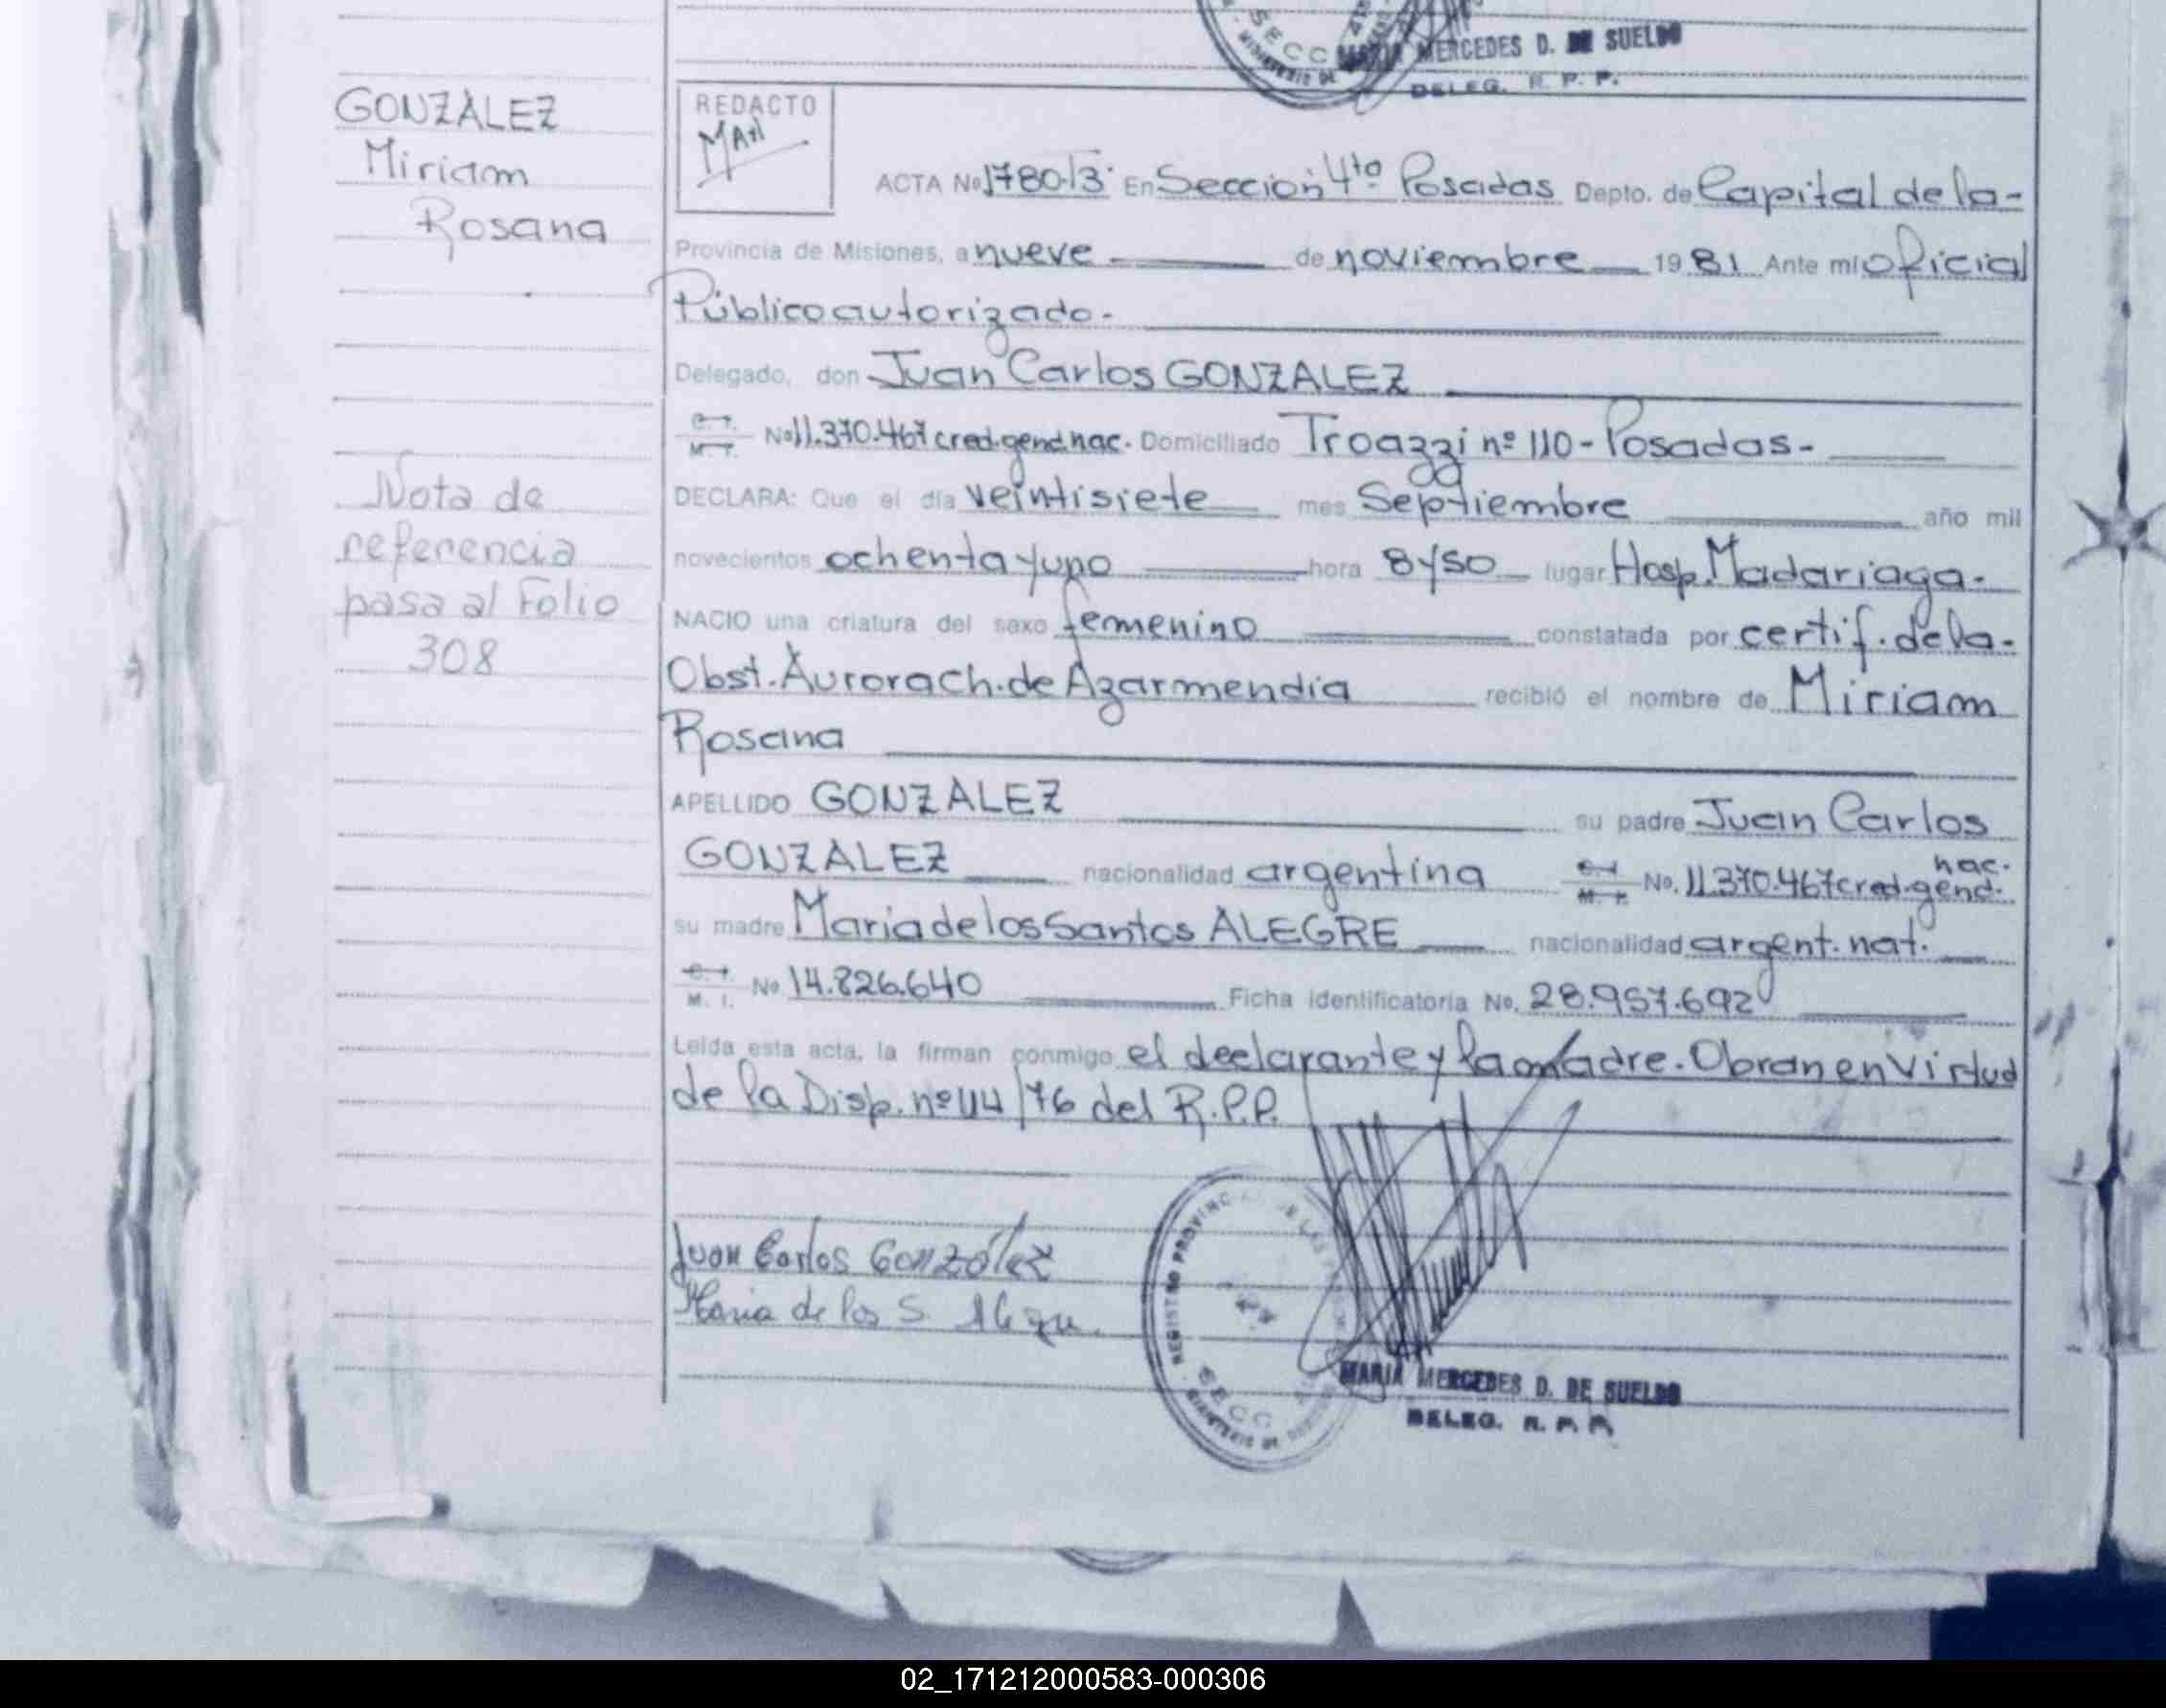 SECC
MERCEDES D. DE SUELDO
DELEG. R. P. P.
GONZÁLEZ
Miriam
Rosana
REDACTO
ACTA No 1780-T3- En Sección 4ta Posadas Depto. de Capital de la-
Provincia de Misiones, a nueve de noviembre 1981 Ante mi oficial
Público autorizado-
Delegado, don Juan Carlos GONZALEZ
No 11.370.467 cred.gend.nac. Domiciliado Troazzi nº 110 - Posadas-
DECLARA: Que el día veintisiete mes Septiembre año mil
novecientos ochenta y uno hora 8 y 50 lugar Hosp. Madariaga.
NACIO una criatura del sexo femenino constatada por certif. de la-
Obst. Aurora Ch. de Azarmendia recibió el nombre de Miriam
Rosana
APELLIDO GONZALEZ su padre Juan Carlos
GONZALEZ nacionalidad argentina No. 11.370.467 cred.gend. nac.
su madre Maria de los Santos ALEGRE nacionalidad argent. nat.
M. I. No. 14.826.640 Ficha identificatoria No. 28.957.692
Leída esta acta, la firman conmigo el declarante y la madre. Obran en virtud
de la Disp. nº 44/76 del R.P.P.
Nota de
referencia
pasa al Folio
308
Juan Carlos González
Maria de los S. Alegre
REGISTRO PROVINC
SECC
MARIA MERCEDES D. DE SUELDO
DELEG. R. P. P.
02_171212000583-000306